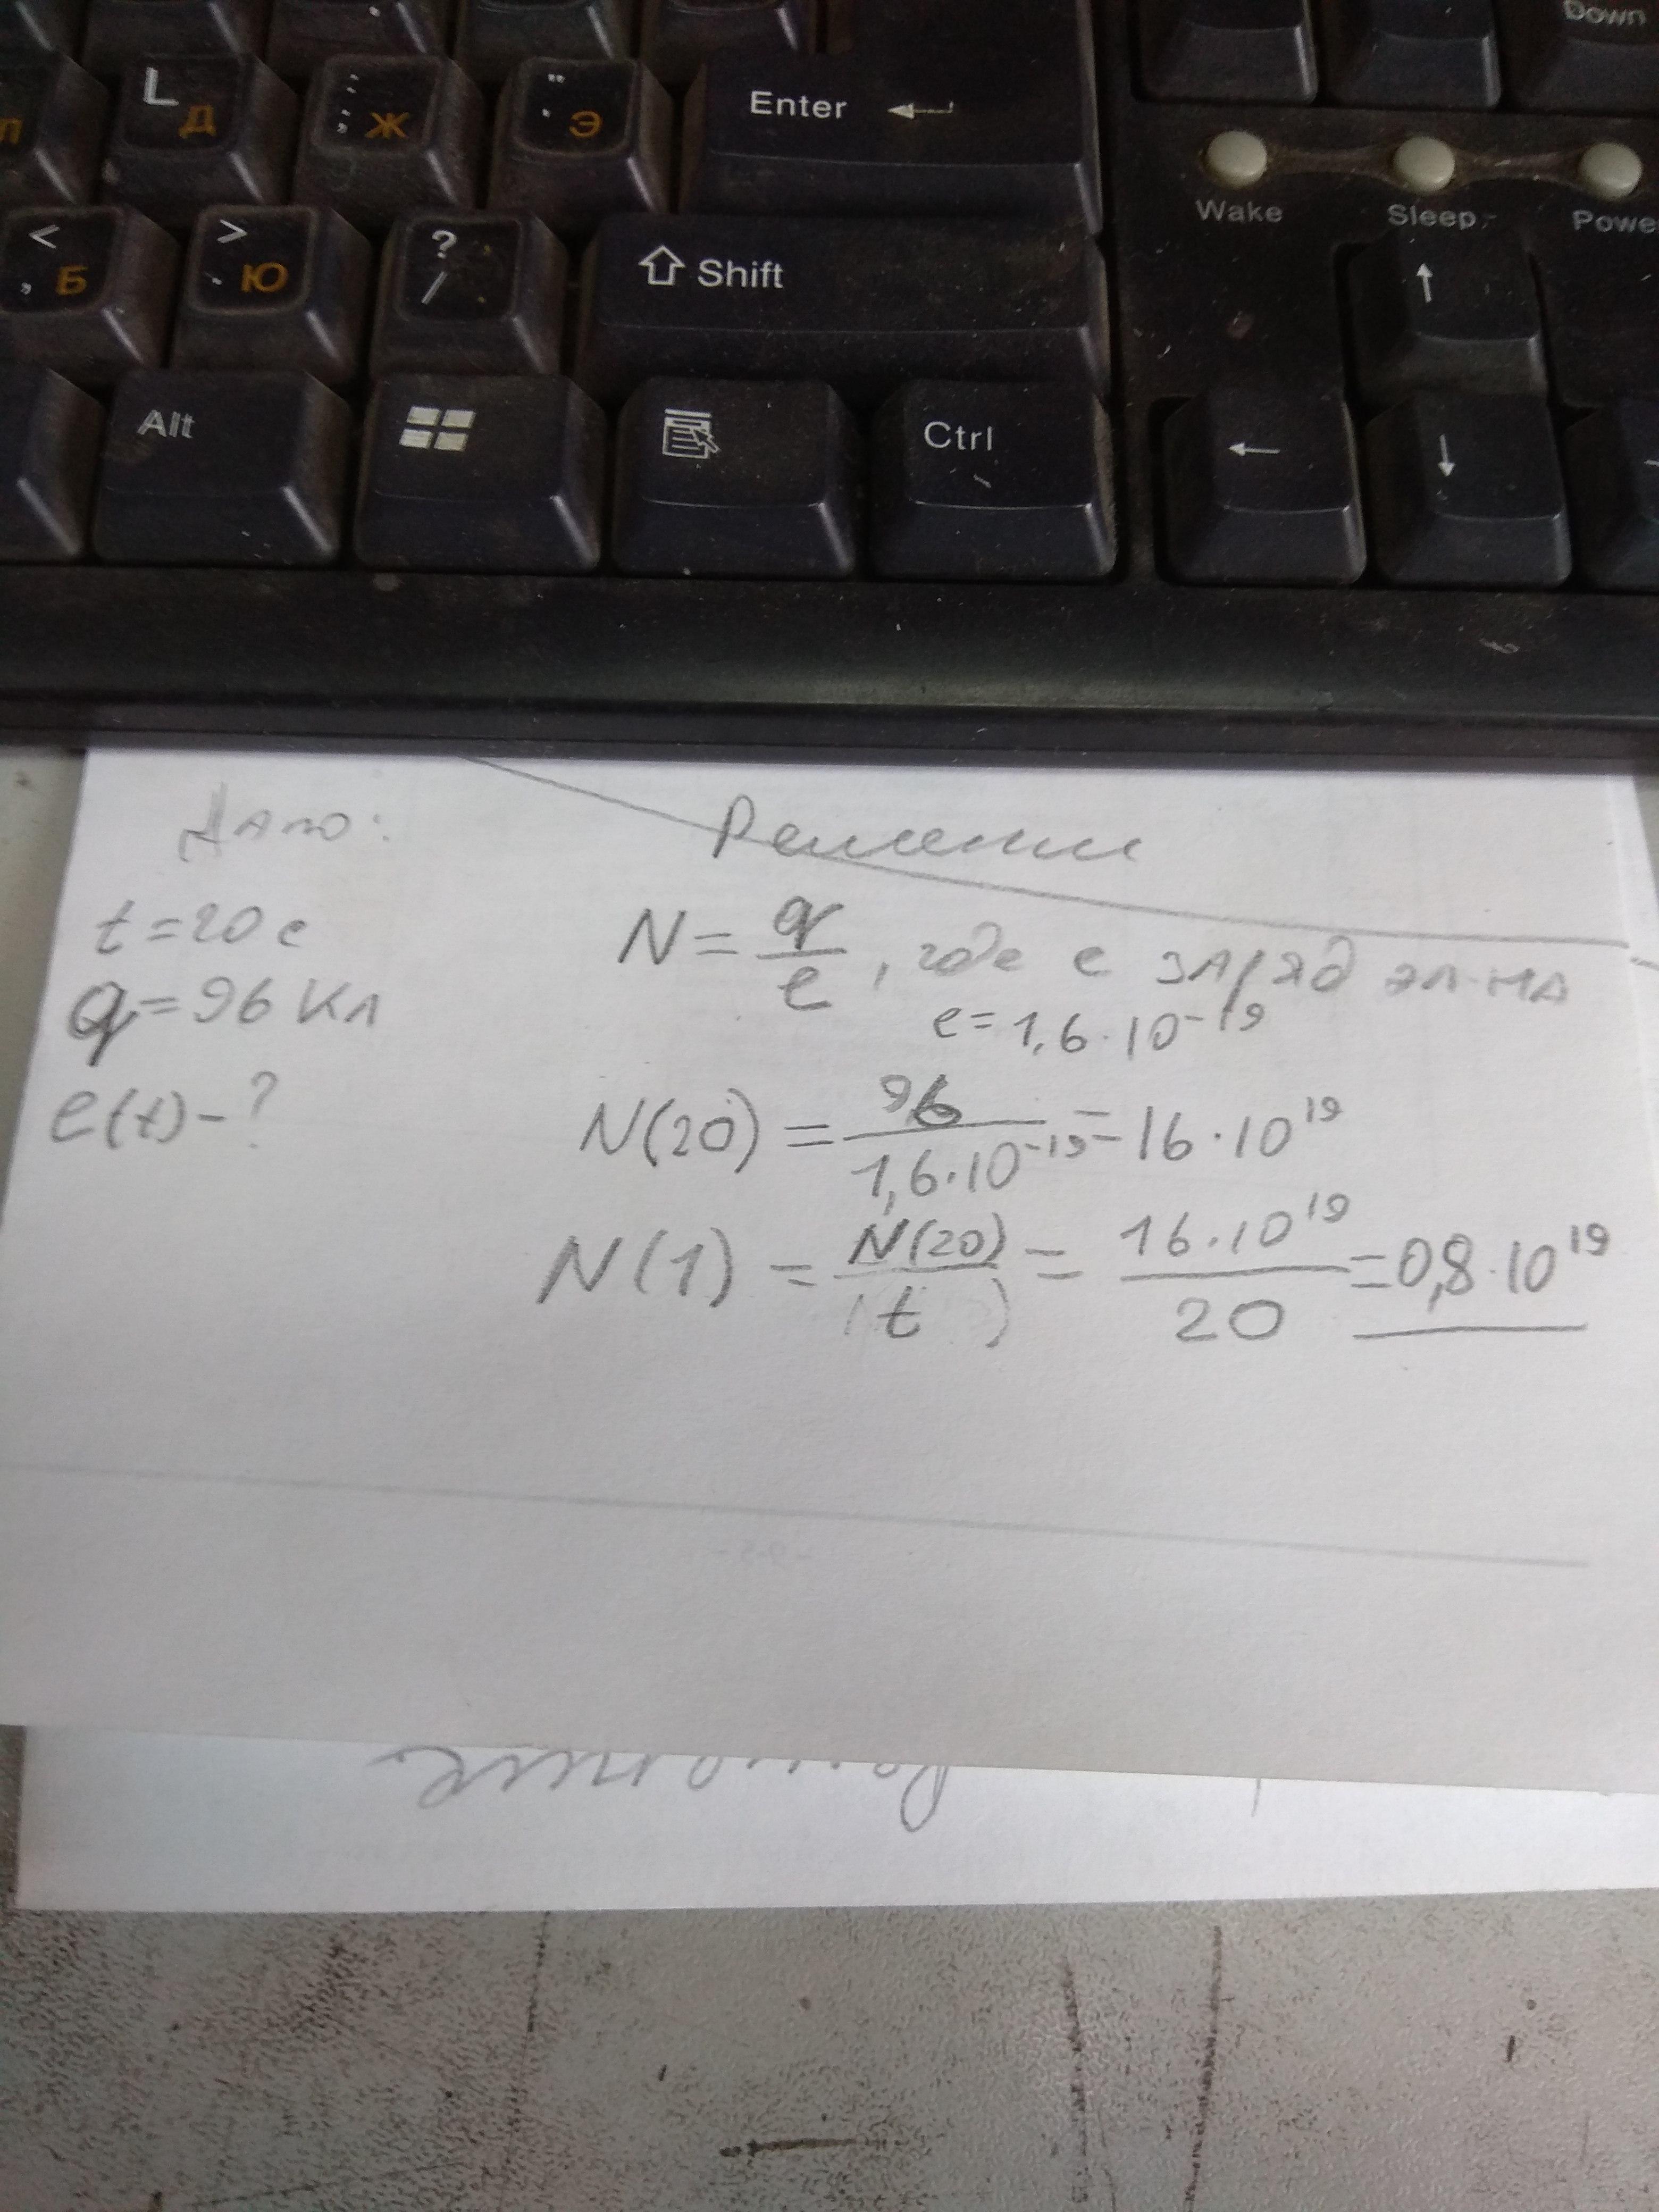 Down
Л L Д ; : Ж " ' Э Enter
Wake Sleep Powe
< , Б > . Ю ? / Shift
Alt Ctrl
Дано: Решение
t=20c
q=96 Кл
e(t)-?
N= q/e, где e заряд эл-на
e=1,6·10⁻¹⁹
N(20) = 96/1,6·10⁻¹⁹ = 16·10¹⁹
N(1) = N(20)/t = 16·10¹⁹/20 = 0,8·10¹⁹